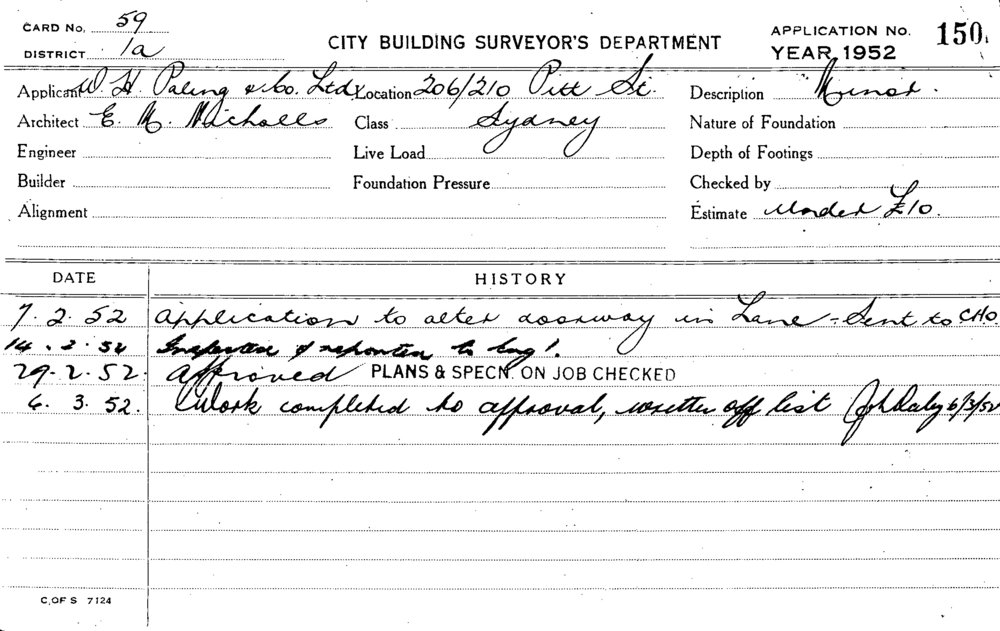 CARD No. 59
DISTRICT 1a
CITY BUILDING SURVEYOR'S DEPARTMENT
APPLICATION No. 150
YEAR 1952
Applicant W. H. Paling & Co. Ltd Location 206/210 Pitt St. Description Minor.
Architect E. M. Nicholls Class Sydney Nature of Foundation
Engineer Live Load Depth of Footings
Builder Foundation Pressure Checked by
Alignment Estimate Under £10.
DATE HISTORY
7.2.52 Application to alter doorway in Lane - Sent to CHO
14.2.52 Inspected & reported to
29.2.52. Approved PLANS & SPECN. ON JOB CHECKED
6.3.52. Work completed to approval, written off list 6/3/52
C. OF S 7124